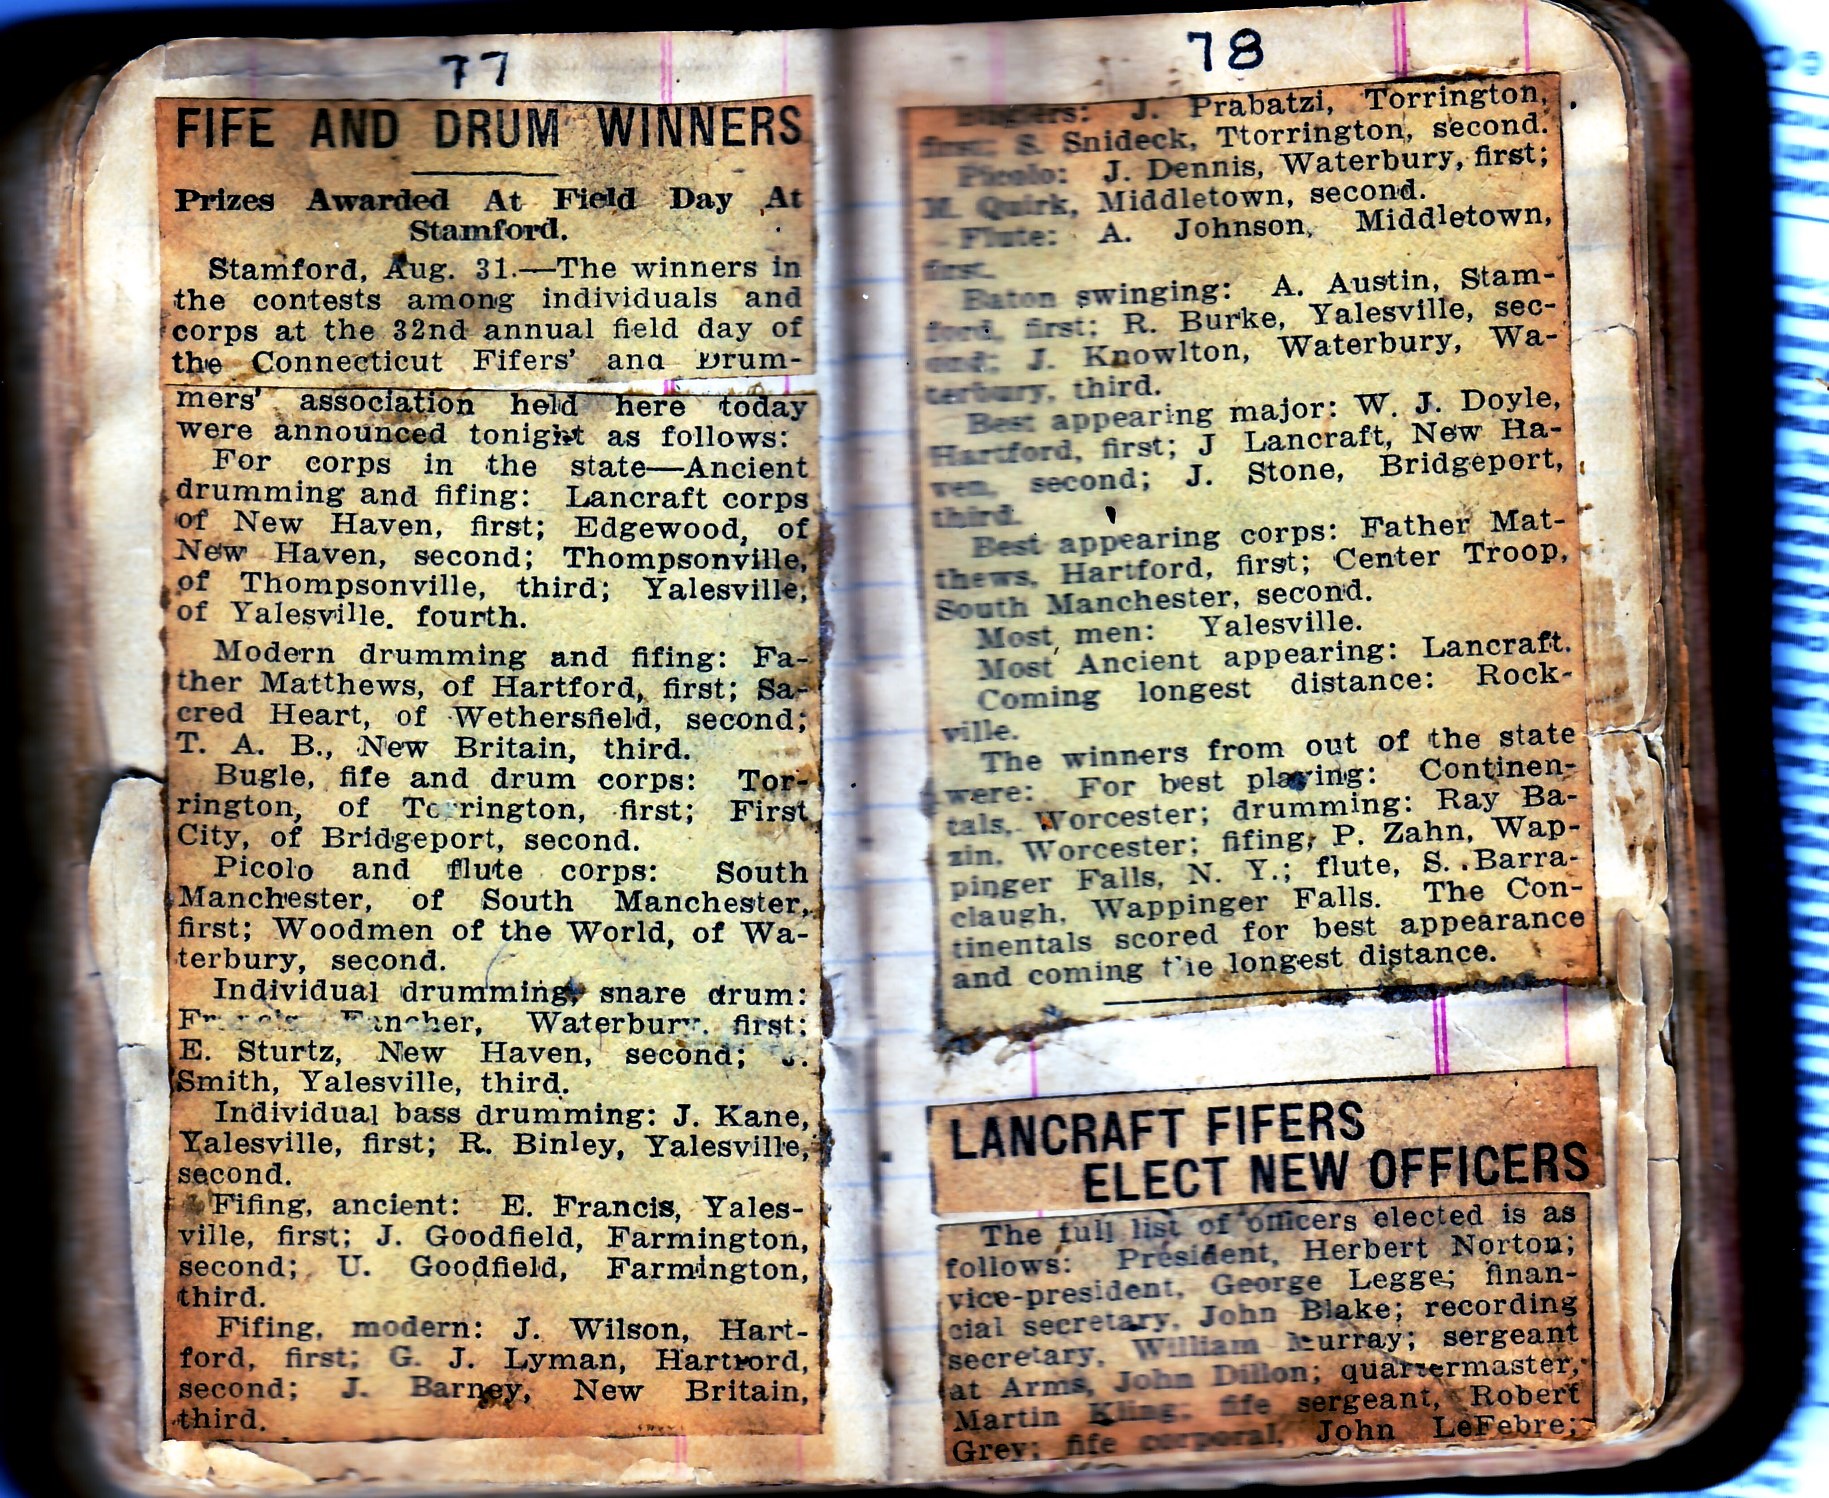 77
FIFE AND DRUM WINNERS
Prizes Awarded At Field Day At
Stamford.
Stamford, Aug. 31.—The winners in
the contests among individuals and
corps at the 32nd annual field day of
the Connecticut Fifers' and Drum-
mers' association held here today
were announced tonight as follows:
For corps in the state—Ancient
drumming and fifing: Lancraft corps
of New Haven, first; Edgewood, of
New Haven, second; Thompsonville,
of Thompsonville, third; Yalesville,
of Yalesville. fourth.
Modern drumming and fifing: Fa-
ther Matthews, of Hartford, first; Sa-
cred Heart, of Wethersfield, second;
T. A. B., New Britain, third.
Bugle, fife and drum corps: Tor-
rington, of Torrington, first; First
City, of Bridgeport, second.
Picolo and flute corps: South
Manchester, of South Manchester,
first; Woodmen of the World, of Wa-
terbury, second.
Individual drumming, snare drum:
Fancher, Waterbury, first;
E. Sturtz, New Haven, second; J.
Smith, Yalesville, third.
Individual bass drumming: J. Kane,
Yalesville, first; R. Binley, Yalesville,
second.
Fifing, ancient: E. Francis, Yales-
ville, first; J. Goodfield, Farmington,
second; U. Goodfield, Farmington,
third.
Fifing, modern: J. Wilson, Hart-
ford, first; G. J. Lyman, Hartford,
second; J. Barney, New Britain,
third.
78
Buglers: J. Prabatzi, Torrington,
first; S. Snideck, Ttorrington, second.
Picolo: J. Dennis, Waterbury, first;
M. Quirk, Middletown, second.
Flute: A. Johnson, Middletown,
first.
Baton swinging: A. Austin, Stam-
ford, first; R. Burke, Yalesville, sec-
ond; J. Knowlton, Waterbury, Wa-
terbury, third.
Best appearing major: W. J. Doyle,
Hartford, first; J Lancraft, New Ha-
ven, second; J. Stone, Bridgeport,
third.
Best appearing corps: Father Mat-
thews, Hartford, first; Center Troop,
South Manchester, second.
Most men: Yalesville.
Most Ancient appearing: Lancraft.
Coming longest distance: Rock-
ville.
The winners from out of the state
were: For best playing: Continen-
tals, Worcester; drumming: Ray Ba-
zin, Worcester; fifing, P. Zahn, Wap-
pinger Falls, N. Y.; flute, S. Barra-
claugh, Wappinger Falls. The Con-
tinentals scored for best appearance
and coming the longest distance.
LANCRAFT FIFERS
ELECT NEW OFFICERS
The full list of officers elected is as
follows: President, Herbert Norton;
vice-president, George Legge; finan-
cial secretary, John Blake; recording
secretary, William Murray; sergeant
at Arms, John Dillon; quartermaster,
Martin Kling; fife sergeant, Robert
Grey; fife corporal, John LeFebre;